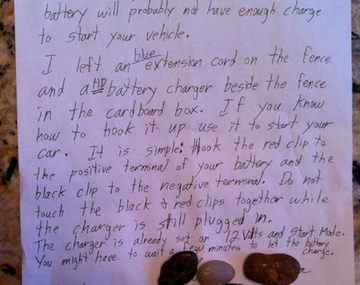 battery will probably not have enough charge
to start your vehicle.
I left an blue extension cord on the fence
and a battery charger beside the fence
in the cardboard box. If you know
how to hook it up use it to start your
car. It is simple. Hook the red clip to
the positive terminal of your battery and the
black clip to the negative terminal. Do not
touch the black & red clips together while
the charger is still plugged in.
The charger is already set on 12 Volts and Start Mode.
You might have to wait a few minutes to let the battery
charge.